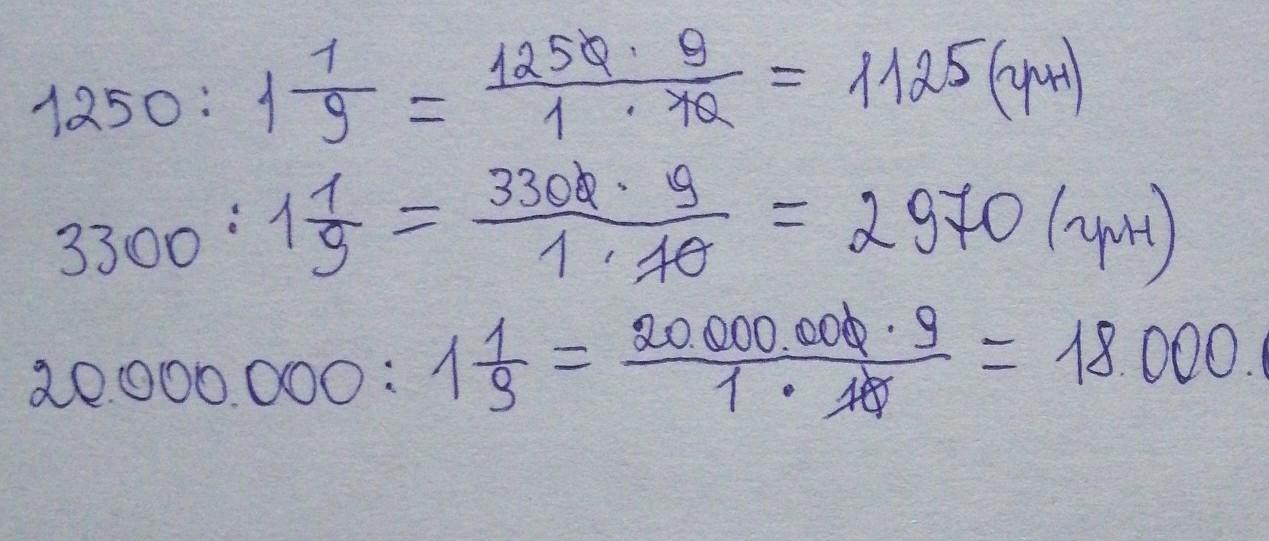 1250 : 1 1/9 = 1250 · 9 / 1 · 10 = 1125 (грн)
3300 : 1 1/9 = 3300 · 9 / 1 · 10 = 2970 (грн)
20.000.000 : 1 1/9 = 20.000.000 · 9 / 1 · 10 = 18.000.